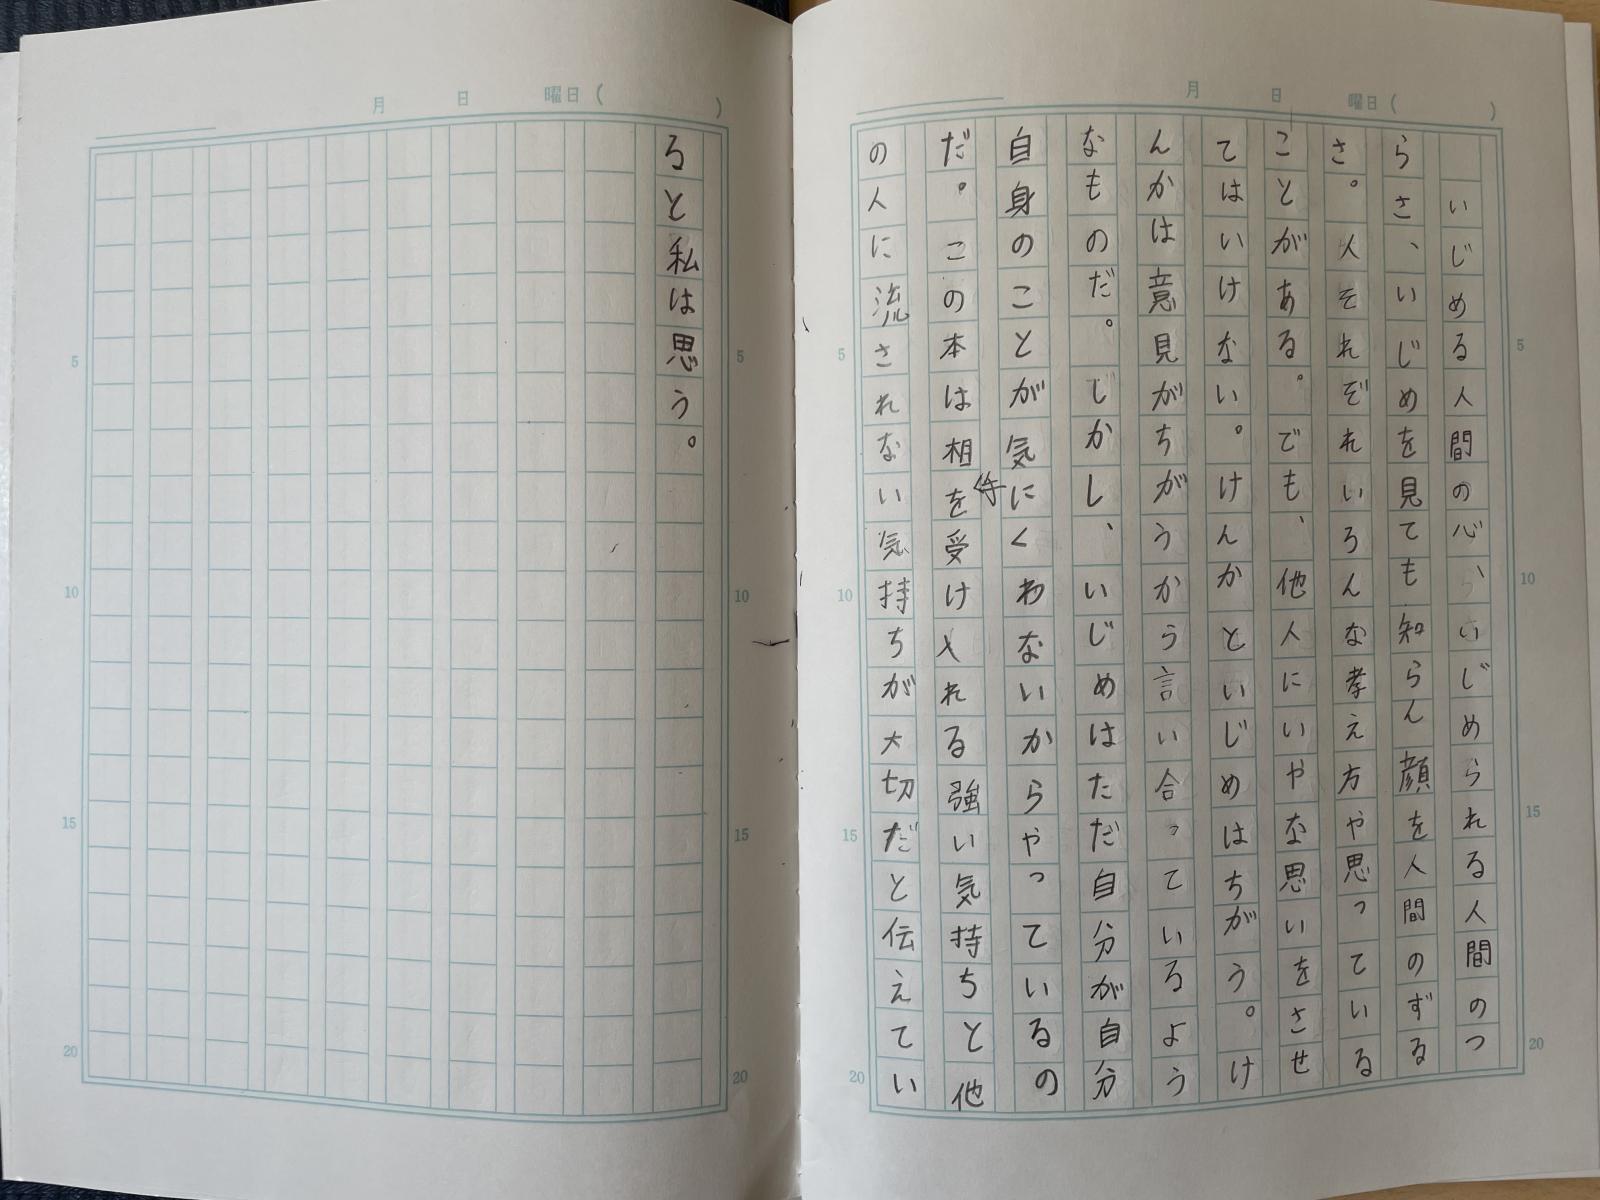 月 日 曜日( )
5
10
15
20
いじめる人間の心、いじめられる人間のつ
らさ、いじめを見ても知らん顔を人間のずる
さ。人それぞれいろんな考え方や思っている
ことがある。でも、他人にいやな思いをさせ
てはいけない。けんかといじめはちがう。け
んかは意見がちがうから言い合っているよう
なものだ。しかし、いじめはただ自分が自分
自身のことが気にくわないからやっているの
だ。この本は相手を受け入れる強い気持ちと他
の人に流されない気持ちが大切だと伝えてい
5
10
15
20
月 日 曜日( )
5
10
15
20
ると私は思う。
5
10
15
20